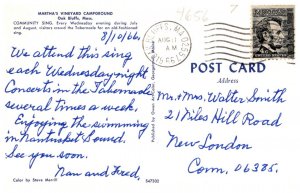 MARTHA'S VINEYARD CAMPGROUND
Oak Bluffs, Mass.
COMMUNITY SING. Every Wednesday evening during July
and August, visitors crowd the Tabernacle for an old-fashioned
sing.
8/10/66.
We attend this sing
each Wednesday night
Concerts in the Tabernacle
several times a week.
Enjoying the swimming
in Nantucket Sound.
See you soon.
Nan and Fred,
Color by Steve Merrill
547302
AUG 11
AM
1966
POST CARD
Address
Mr. & Mrs. Walter Smith
21 Niles Hill Road
New London
Conn. 06385.